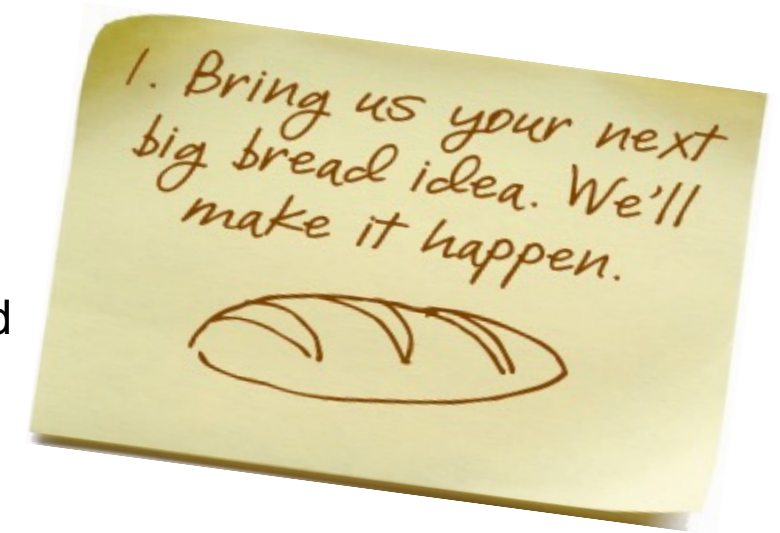 1. Bring us your next
big bread idea. We'll
make it happen.
d